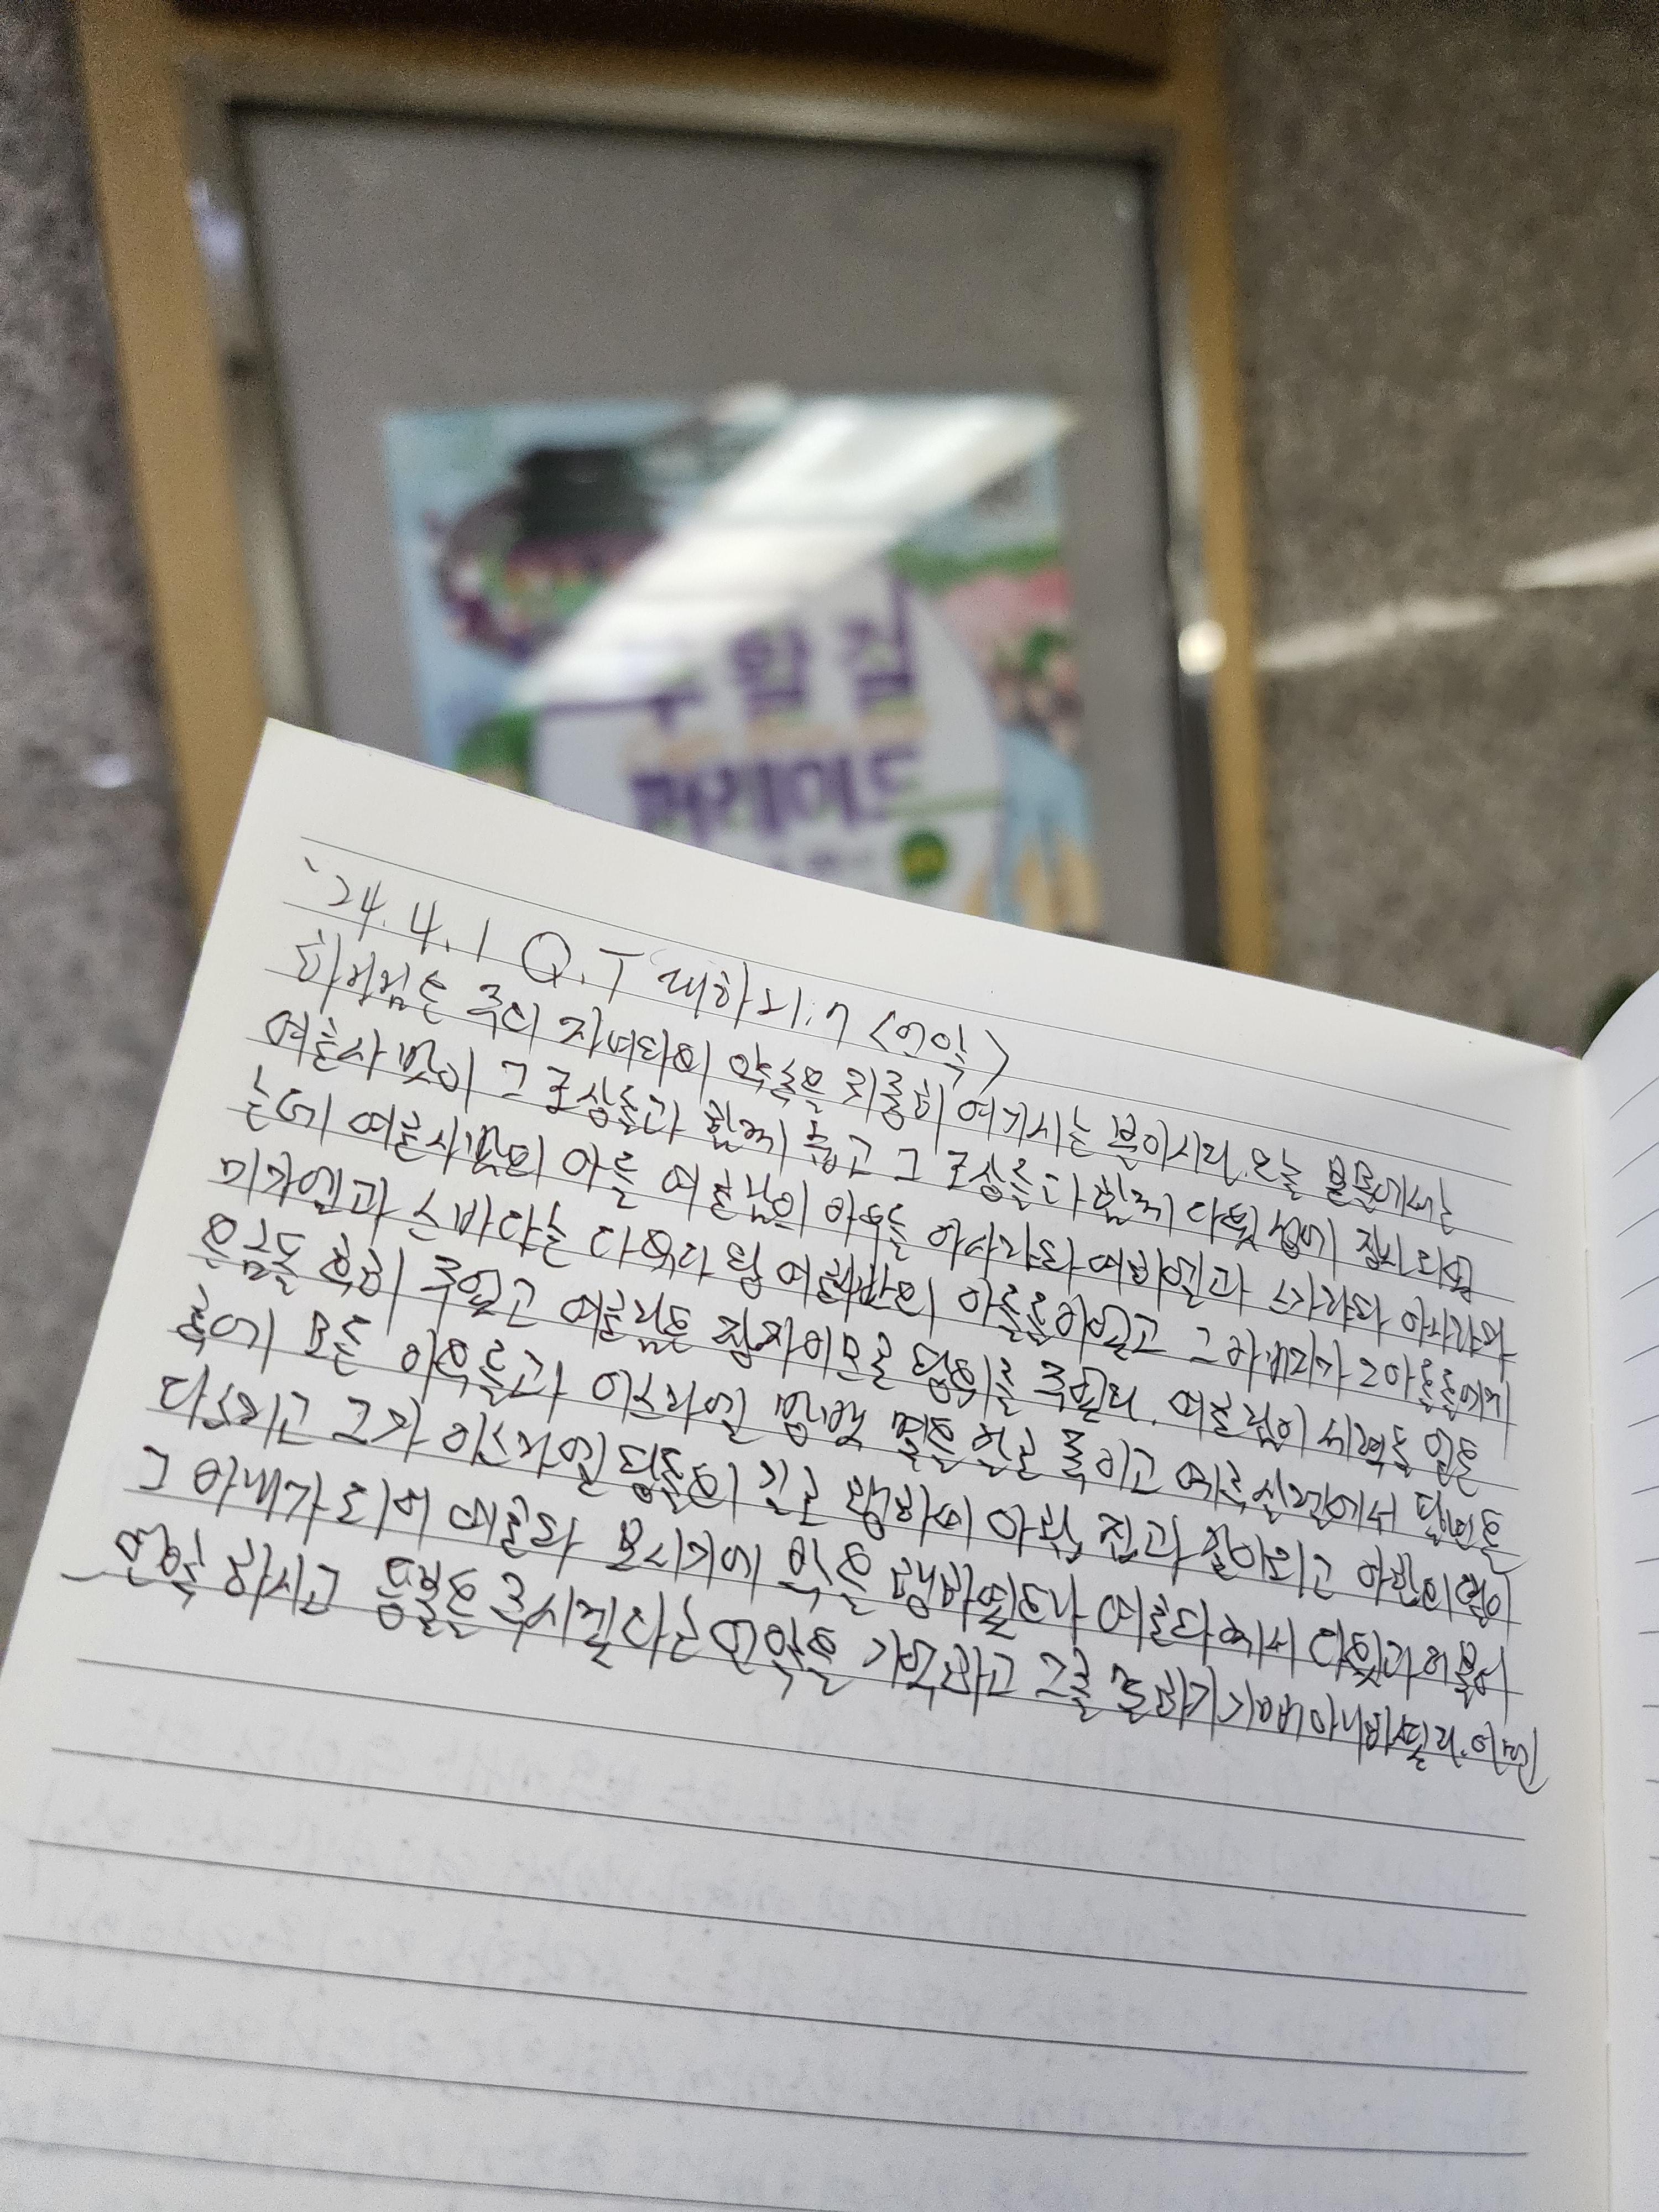 부활절
퍼레이드
'24.4.1 Q.T 대하21:7 <언약>
하나님은 주의 자녀와의 약속을 귀중히 여기시는 분이시라. 오늘 본문에서는
여호사밧이 그 조상들과 함께 눕고 그 조상들과 함께 다윗성에 장사되었
는데 여호사밧의 아들 여호람의 아우들 아사랴와 여히엘과 스가랴와 아사랴와
미가엘과 스바댜는 다 유다 왕 여호사밧의 아들들이었고 그 아버지가 그 아들들에게
은금을 후히 주었고 여호람은 장자이므로 왕위를 주었다. 여호람이 세력을 얻은
후에 모든 아우들과 이스라엘 방백 몇을 칼로 죽이고 예루살렘에서 팔년을
다스리고 그가 이스라엘 왕들의 길로 행하여 아합 집과 같이하고 아합의 딸이
그 아내가 되어 여호와 보시기에 악을 행하였으나 여호와께서 다윗과 더불어
언약 하시고 등불을 주시겠다는 언약을 기억하고 그를 멸하기 기뻐 아니하셨다. 아멘